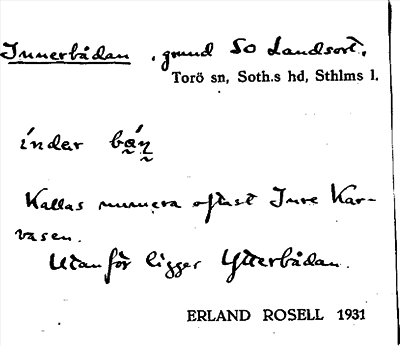 Innerbådan, grund SO Landsort.
Torö sn, Soth.s hd, Sthlms l.
índer bą́n̰
Kallas numera oftast Inre Kar-
vasen.
Utanför ligger Ytterbådan.
ERLAND ROSELL 1931